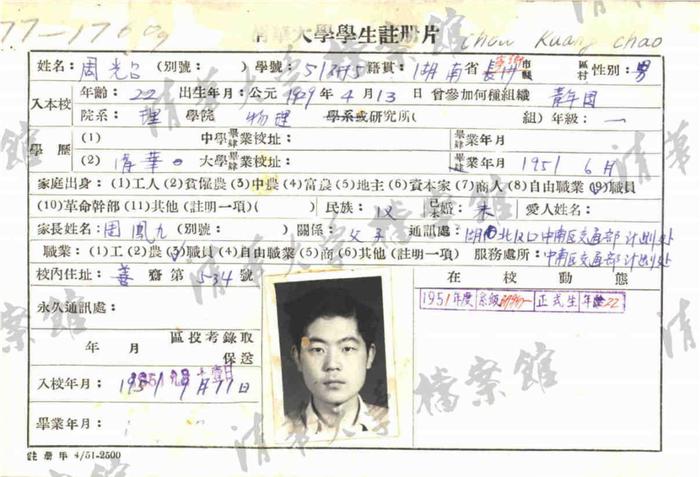 清華大學學生註冊片
chou Kuang chao
姓名：周光召 (別號： ) 學號：籍貫：湖南省長沙市縣 區村 性別：男
入本校 年齡：22 出生年月：公元1929年4月13日 曾參加何種組織 青年團
院系：理 學院 物理 學系或研究所( 組) 年級：一
學歷 (1) 中學畢業肄業校址： 畢業肄業年月
(2) 清華 大學畢業肄業校址： 畢業肄業年月 1951 6月
家庭出身：(1)工人(2)貧僱農(3)中農(4)富農(5)地主(6)資本家(7)商人(8)自由職業(9)職員
(10)革命幹部(11)其他(註明一項)( ) 民族：汉 已未婚：未 愛人姓名：
家長姓名：周鳳九(別號： ) 關係：父子 通訊處：湖北汉口中南区交通部计划处
職業：(1)工(2)農(3)職員(4)自由職業(5)商(6)其他(註明一項) 服務處所：中南区交通部计划处
校內住址：善 齋 第 534 號
在校動態
永久通訊處：
1951年度 系級研物一 正式生 年齡22
年 月 區投考錄取 保送
入校年月：1951 9月 11日
畢業年月：
註册甲 4/51-2500
清华大学檔案館